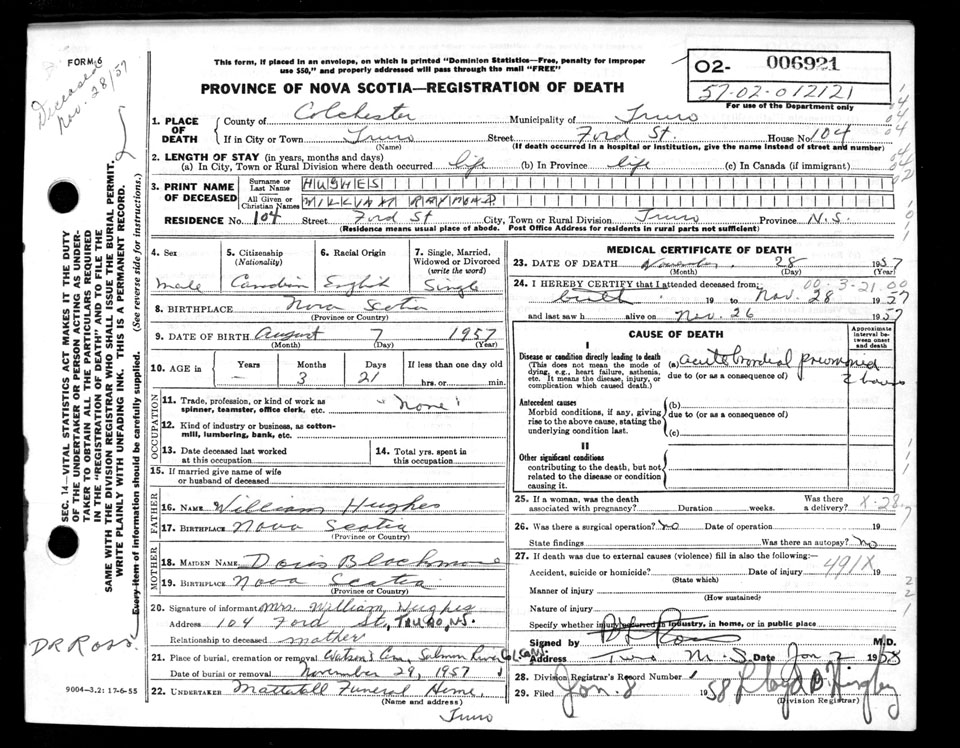 FORM 6
Deceased
Nov. 28/57
This form, if placed in an envelope, on which is printed "Dominion Statistics—Free, penalty for improper
use $50," and properly addressed will pass through the mail "FREE"
O2- 006921
57-02-012121
For use of the Department only
PROVINCE OF NOVA SCOTIA—REGISTRATION OF DEATH
1. PLACE OF DEATH
County of Colchester Municipality of Truro
If in City or Town Truro Street Ford St. House No 104
(Name) (If death occurred in a hospital or institution, give the name instead of street and number)
2. LENGTH OF STAY (in years, months and days)
(a) In City, Town or Rural Division where death occurred life (b) In Province life (c) In Canada (if immigrant)
3. PRINT NAME OF DECEASED
Surname or Last Name HUGHES
All Given or Christian Names WILLIAM RAYMOND
RESIDENCE No. 104 Street Ford St City, Town or Rural Division Truro Province N.S.
(Residence means usual place of abode. Post Office Address for residents in rural parts not sufficient)
4. Sex 5. Citizenship (Nationality) 6. Racial Origin 7. Single, Married, Widowed or Divorced (write the word)
male Canadian English Single
8. BIRTHPLACE Nova Scotia
(Province or Country)
9. DATE OF BIRTH August 7 1957
(Month) (Day) (Year)
10. AGE in Years Months Days If less than one day old
— 3 21 hrs. or min.
OCCUPATION
11. Trade, profession, or kind of work as spinner, teamster, office clerk, etc. "None"
12. Kind of industry or business, as cotton-mill, lumbering, bank, etc.
13. Date deceased last worked at this occupation
14. Total yrs. spent in this occupation
15. If married give name of wife or husband of deceased
FATHER
16. NAME William Hughes
17. BIRTHPLACE Nova Scotia
(Province or Country)
MOTHER
18. MAIDEN NAME Doris
19. BIRTHPLACE Nova Scotia
(Province or Country)
20. Signature of informant Mrs. William Hughes
Address 104 Ford St, TRURO, N.S.
Relationship to deceased mother
21. Place of burial, cremation or removal Watson's Cem. Salmon River Col. Co.
Date of burial or removal November 29, 1957
22. UNDERTAKER Mattatall Funeral Home
(Name and address)
Truro
MEDICAL CERTIFICATE OF DEATH
23. DATE OF DEATH November 28 1957
(Month) (Day) (Year)
00-3-21.00
24. I HEREBY CERTIFY that I attended deceased from:
birth 19 to Nov. 28 1957
and last saw h alive on Nov. 26 1957
CAUSE OF DEATH
Approximate interval between onset and death
I
Disease or condition directly leading to death
(This does not mean the mode of dying, e.g., heart failure, asthenia, etc. It means the disease, injury, or complication which caused death.)
(a) acute bronchial pneumonia
due to (or as a consequence of) 2 hours
Antecedent causes
Morbid conditions, if any, giving rise to the above cause, stating the underlying condition last.
(b)
due to (or as a consequence of)
(c)
II
Other significant conditions contributing to the death, but not related to the disease or condition causing it.
25. If a woman, was the death associated with pregnancy? Duration weeks. Was there a delivery? X-28
26. Was there a surgical operation? no Date of operation 19
State findings Was there an autopsy? no
27. If death was due to external causes (violence) fill in also the following:—
Accident, suicide or homicide? Date of injury 491X 19
(State which)
Manner of injury
(How sustained)
Nature of injury
Specify whether injury occurred in industry, in home, or in public place
Signed by Ross M.D.
Address Truro N.S Date Jan 2 1958
28. Division Registrar's Record Number
29. Filed Jan. 8 1958 Lloyd B
(Division Registrar)
SEC. 14—VITAL STATISTICS ACT MAKES IT THE DUTY
OF THE UNDERTAKER OR PERSON ACTING AS UNDER-
TAKER TO OBTAIN ALL THE PARTICULARS REQUIRED
IN THE "REGISTRATION OF DEATH" AND TO FILE THE
SAME WITH THE DIVISION REGISTRAR WHO SHALL ISSUE THE BURIAL PERMIT.
WRITE PLAINLY WITH UNFADING INK. THIS IS A PERMANENT RECORD.
Every item of information should be carefully supplied. (See reverse side for instructions.)
DR ROSS
9004-3.2: 17-6-55